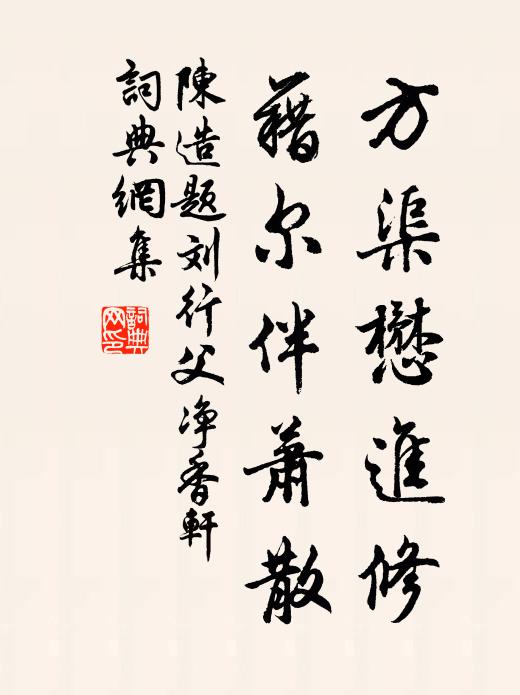 方渠懋進修
藉尔伴蕭散
陳造題刘行父净香軒
詞典網集
詞典网印